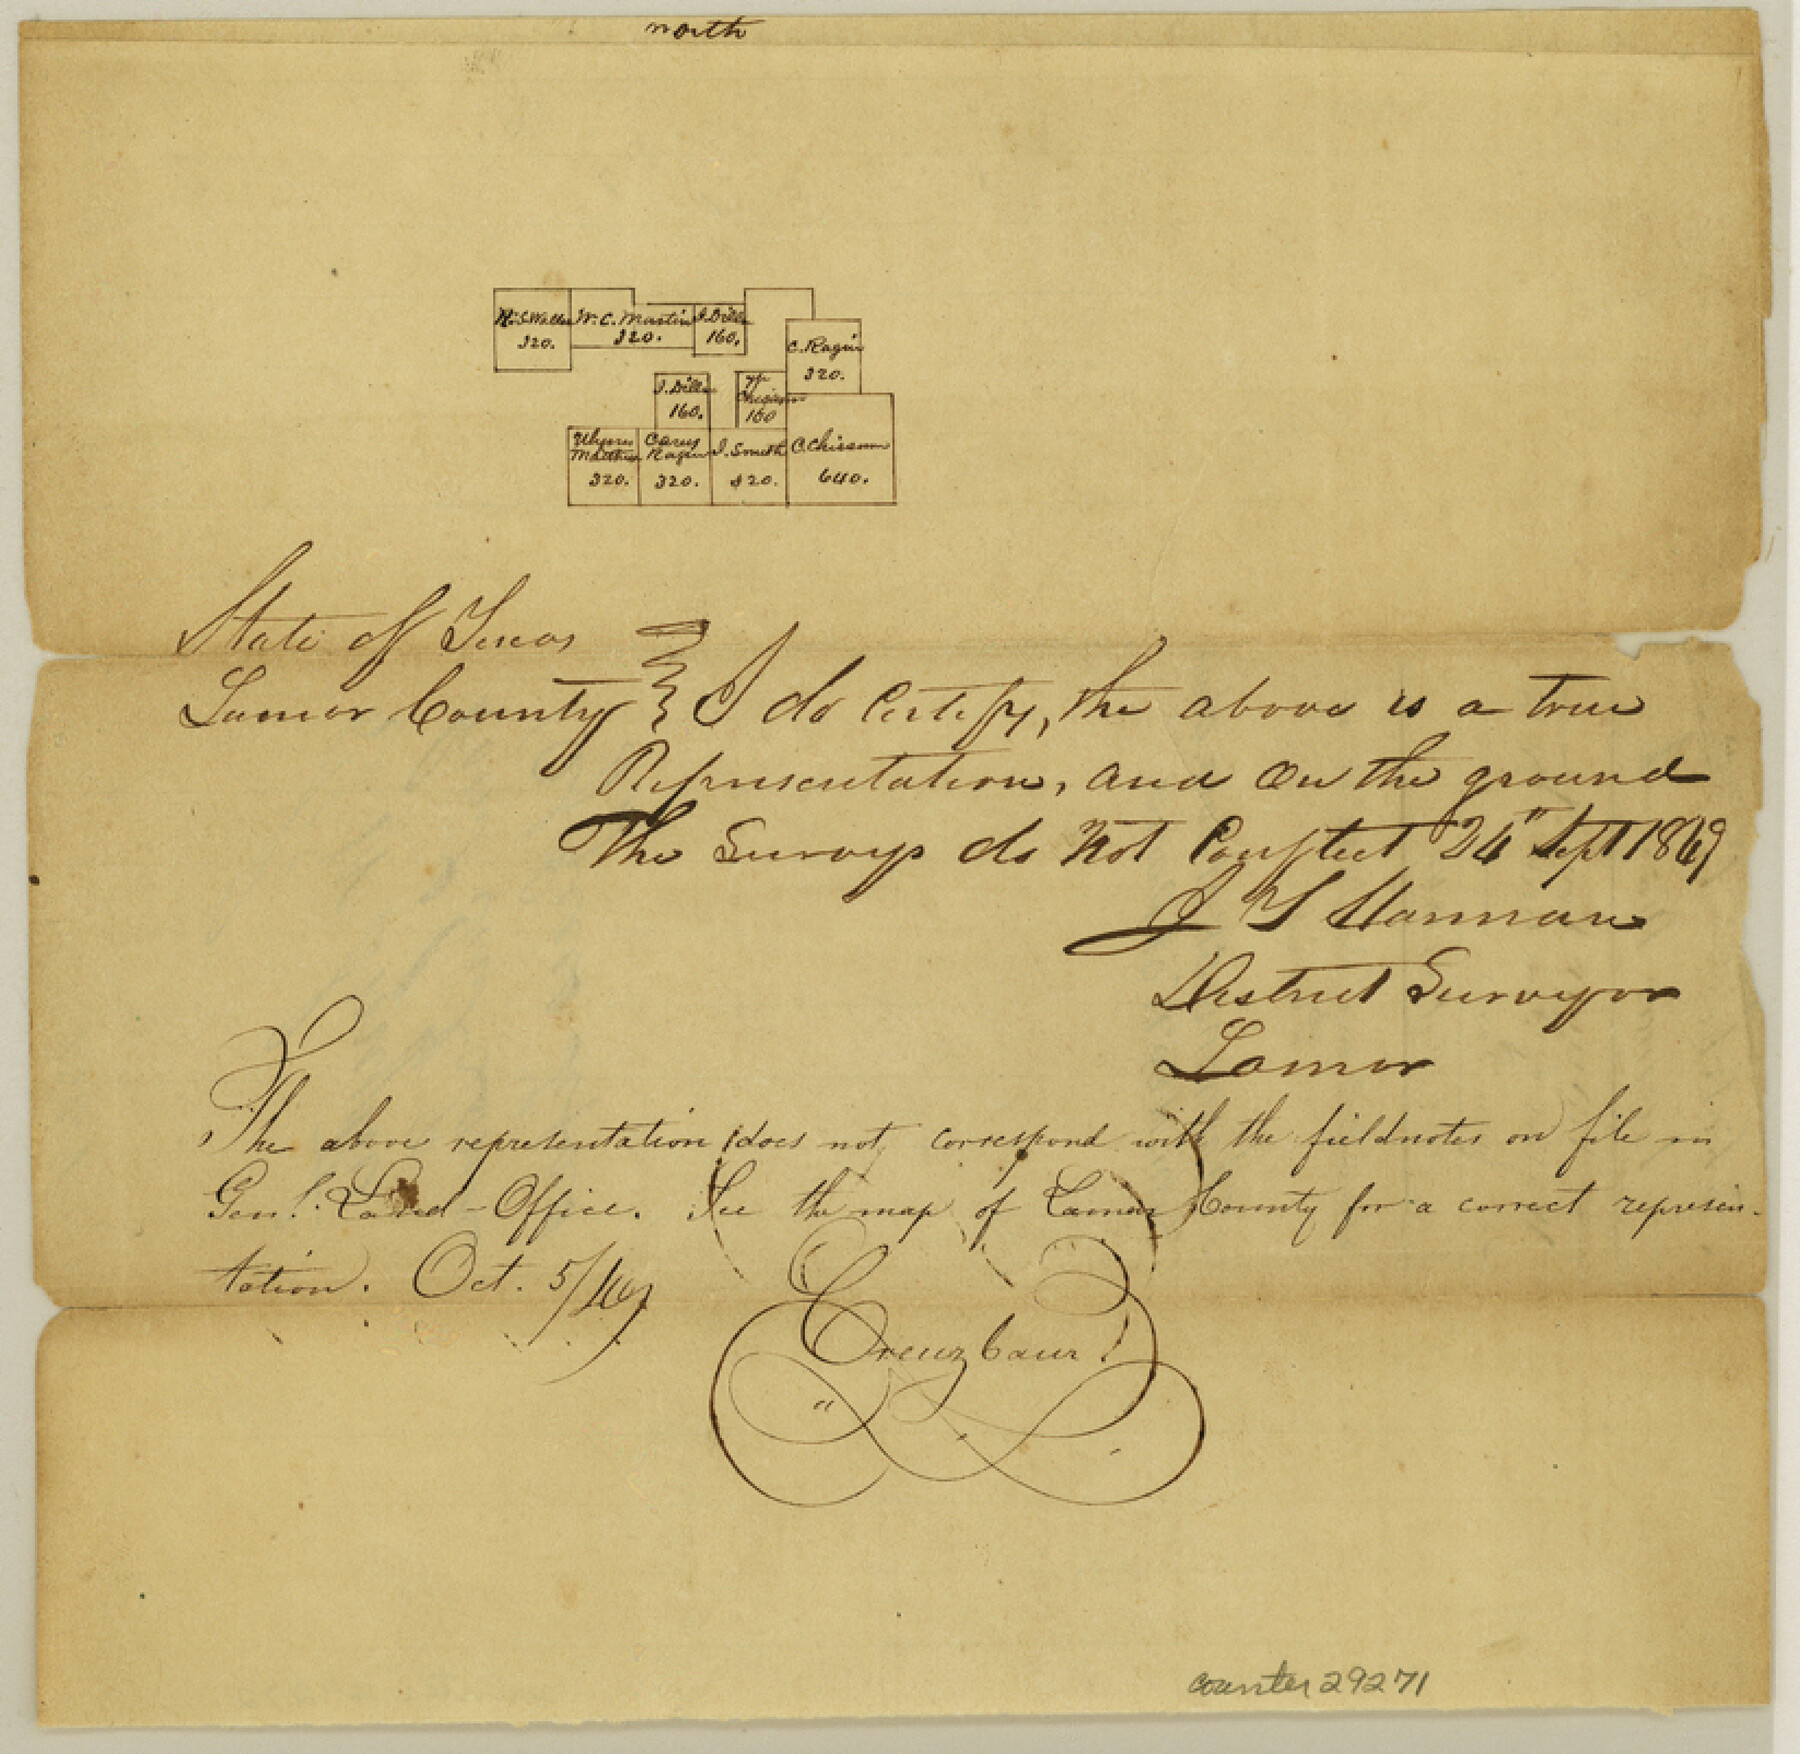 north
W. C. Martin
320.
320.
160.
C. Ragin
320.
160.
160
Ulysses
Matthews
320.
Carey
Ragin
320.
J. Smith
320.
C. Chissom
640.
State of Texas
Lamar County } I do Certify, the above is a true
Representation, and on the ground
The Surveys do not Conflict 24" Sept 1849
District Surveyor
Lamar
The above representation does not correspond with the fieldnotes on file in
Genl. Land-Office. See the map of Lamar County for a correct represen-
tation. Oct. 5/49
Creuzbaur
counter 29271